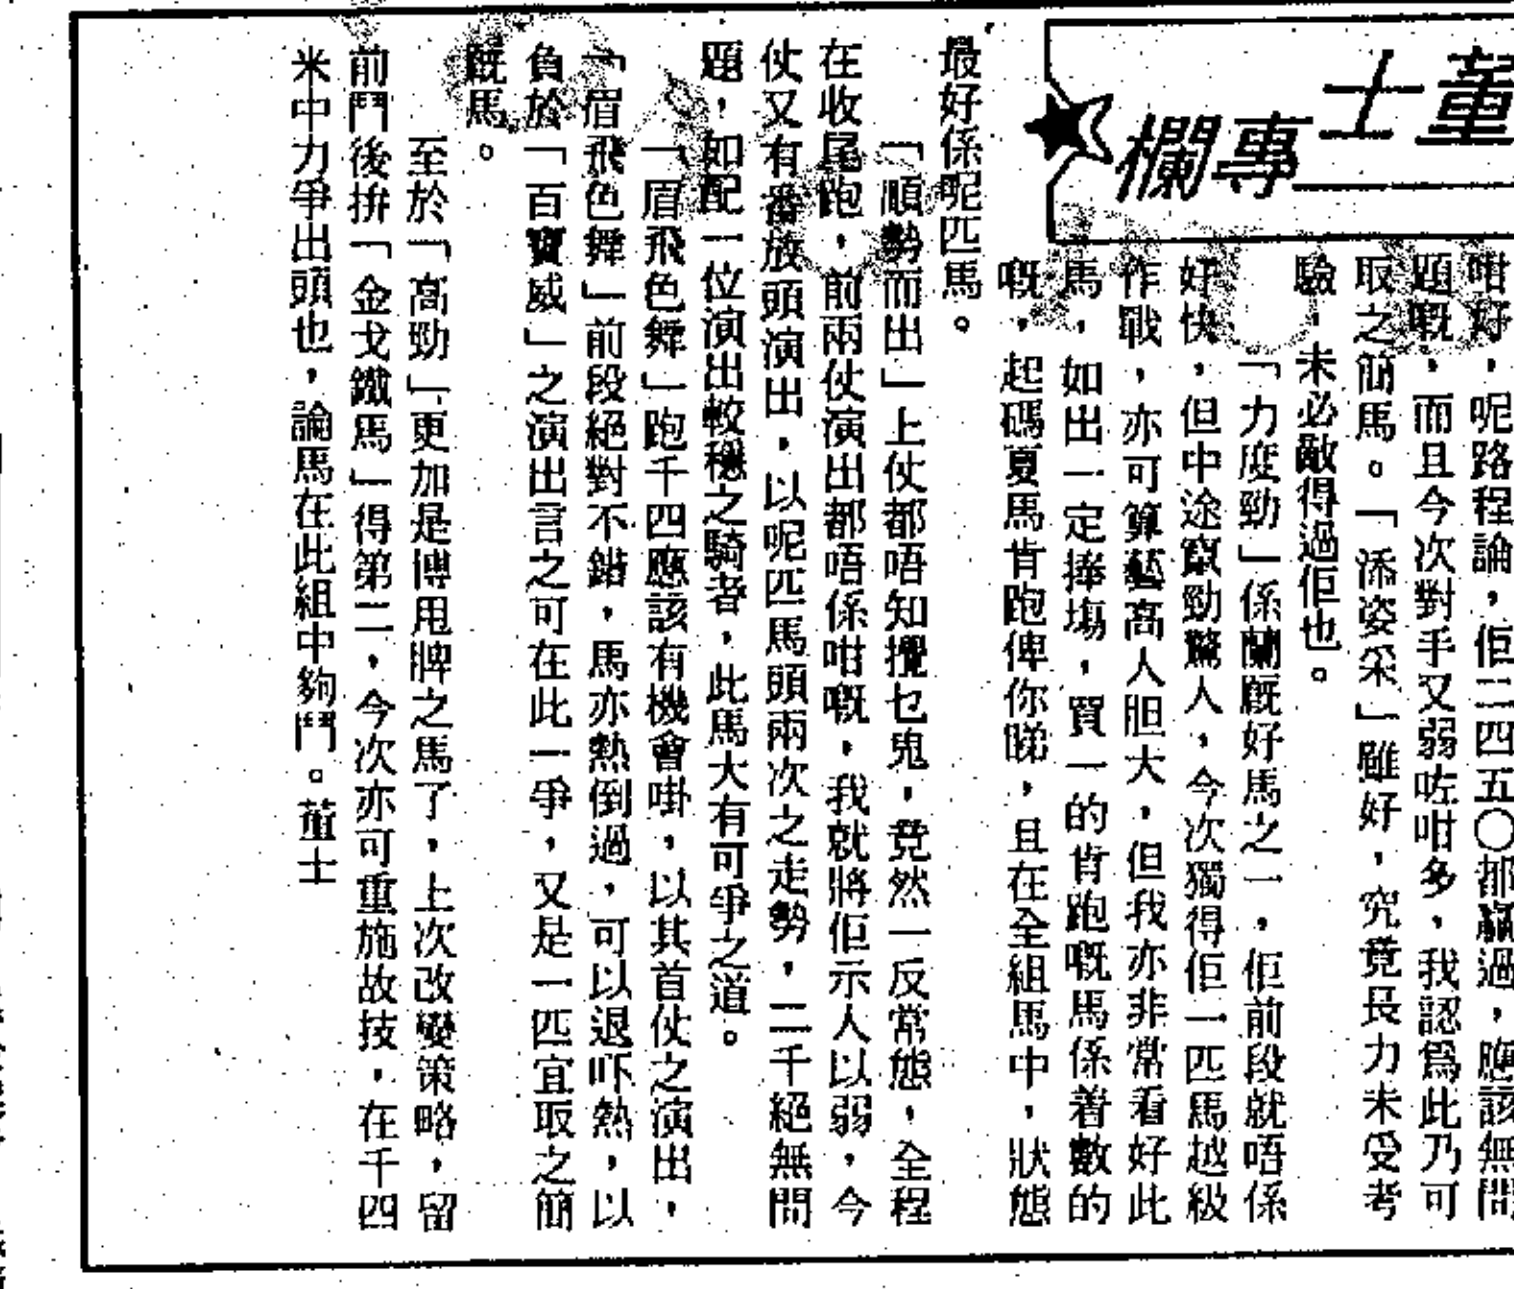 董士
專欄
咁好，呢路程論，佢二四五〇都贏過，應該無問
題嘅，而且今次對手又弱咗咁多，我認爲此乃可
取之簡馬。「添姿采」雖好，究竟長力未受考
驗，未必敵得過佢也。
「力度勁」係蘭廐好馬之一，佢前段就唔係
好快，但中途竄勁驚人，今次獨得佢一匹馬越級
作戰，亦可算藝高人胆大，但我亦非常看好此
馬，如出一定捧塲，買一的肯跑嘅馬係着數的
嘅，起碼夏馬肯跑俾你睇，且在全組馬中，狀態
最好係呢匹馬。
「順勢而出」上仗都唔知攪乜鬼，竟然一反常態，全程
在收尾跑，前兩仗演出都唔係咁嘅，我就將佢示人以弱，今
仗又有番放頭演出，以呢匹馬頭兩次之走勢，二千絕無問
題，如配一位演出較穩之騎者，此馬大有可爭之道。
「眉飛色舞」跑千四應該有機會啩，以其首仗之演出，
「眉飛色舞」前段絕對不錯，馬亦熱倒過，可以退吓熱，以
負於「百寶威」之演出言之可在此一爭，又是一匹宜取之簡
旣馬。
至於「高勁」更加是博甩牌之馬了，上次改變策略，留
前鬥後拚「金戈鐵馬」得第二，今次亦可重施故技，在千四
米中力爭出頭也，論馬在此組中夠鬥。董士